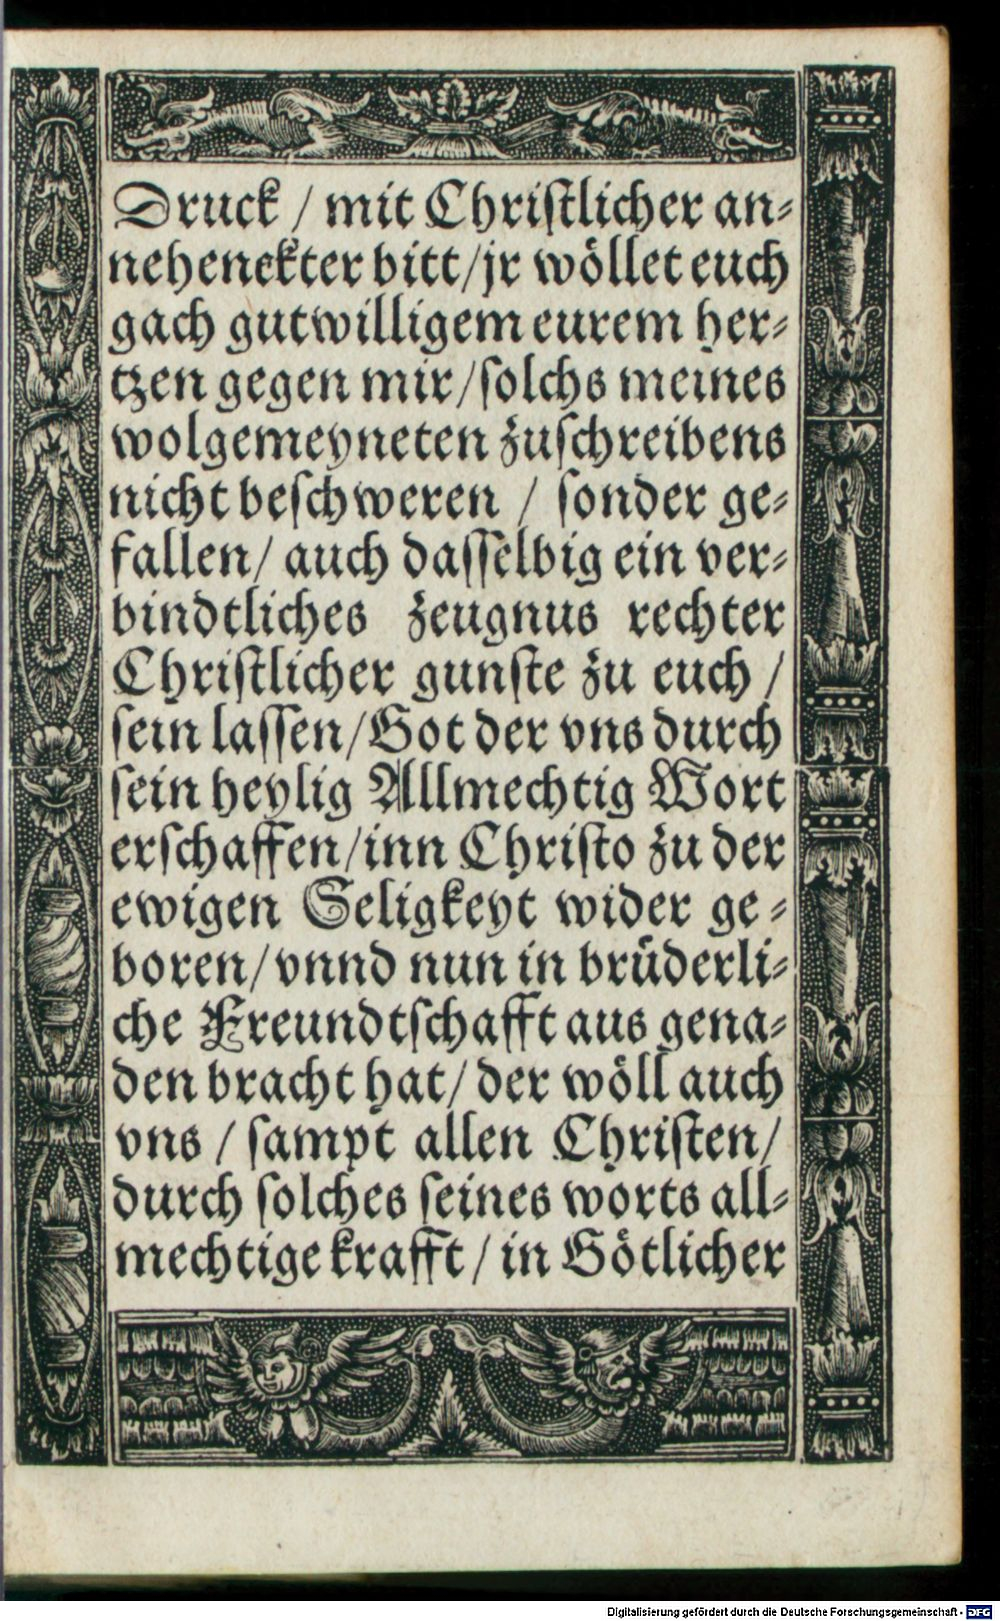 Druck / mit Christlicher an⸗
nehenckter bitt/jr wöllet euch
gach gutwilligem eurem her⸗
tzen gegen mir/solchs meines
wolgemeyneten zuschreibens
nicht beschweren / sonder ge⸗
fallen/ auch dasselbig ein ver⸗
bindtliches zeugnus rechter
Christlicher gunste zu euch /
sein lassen/Got der vns durch
sein heylig Allmechtig Wort
erschaffen/inn Christo zu der
ewigen Seligkeyt wider ge⸗
boren/vnnd nun in brůderli⸗
che Freundtschafft aus gena⸗
den bracht hat/ der wöll auch
vns / sampt allen Christen/
durch solches seines worts all⸗
mechtige krafft / in Götlicher
Digitalisierung gefördert durch die Deutsche Forschungsgemeinschaft - DFG